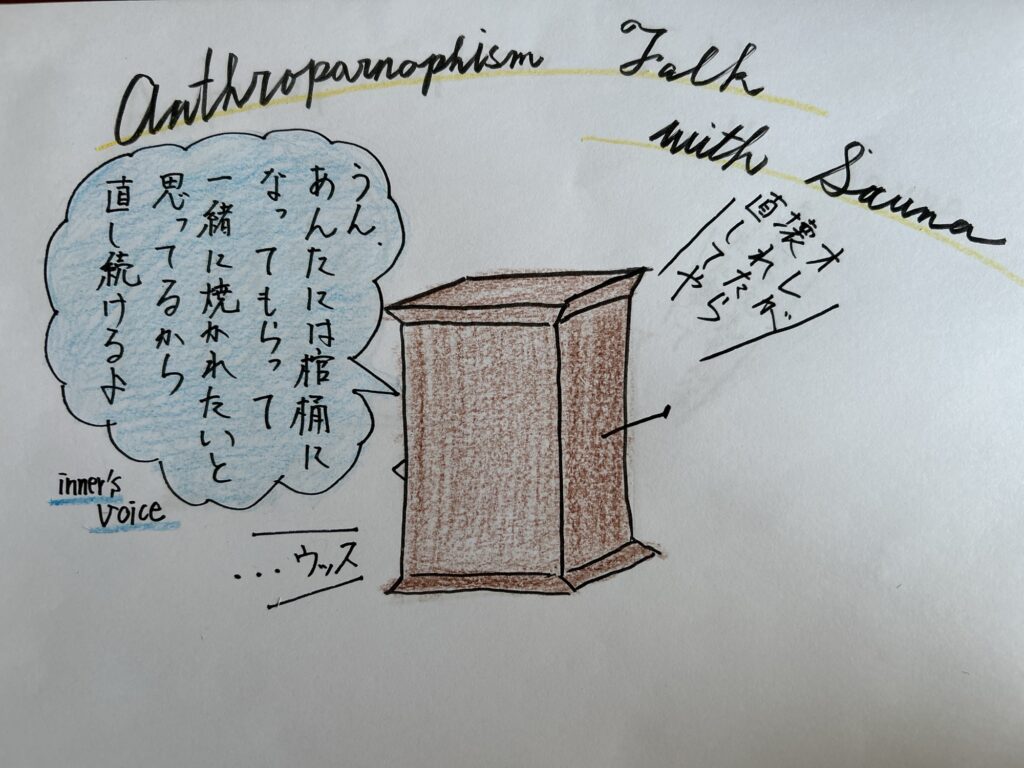 Anthroparnophism Talk
with Sauna
オレが
壊れたら
直してや
うん、
あんたには棺桶に
なってもらって
一緒に焼かれたいと
思ってるから
直し続けるよ
inner's
voice
...ウッス